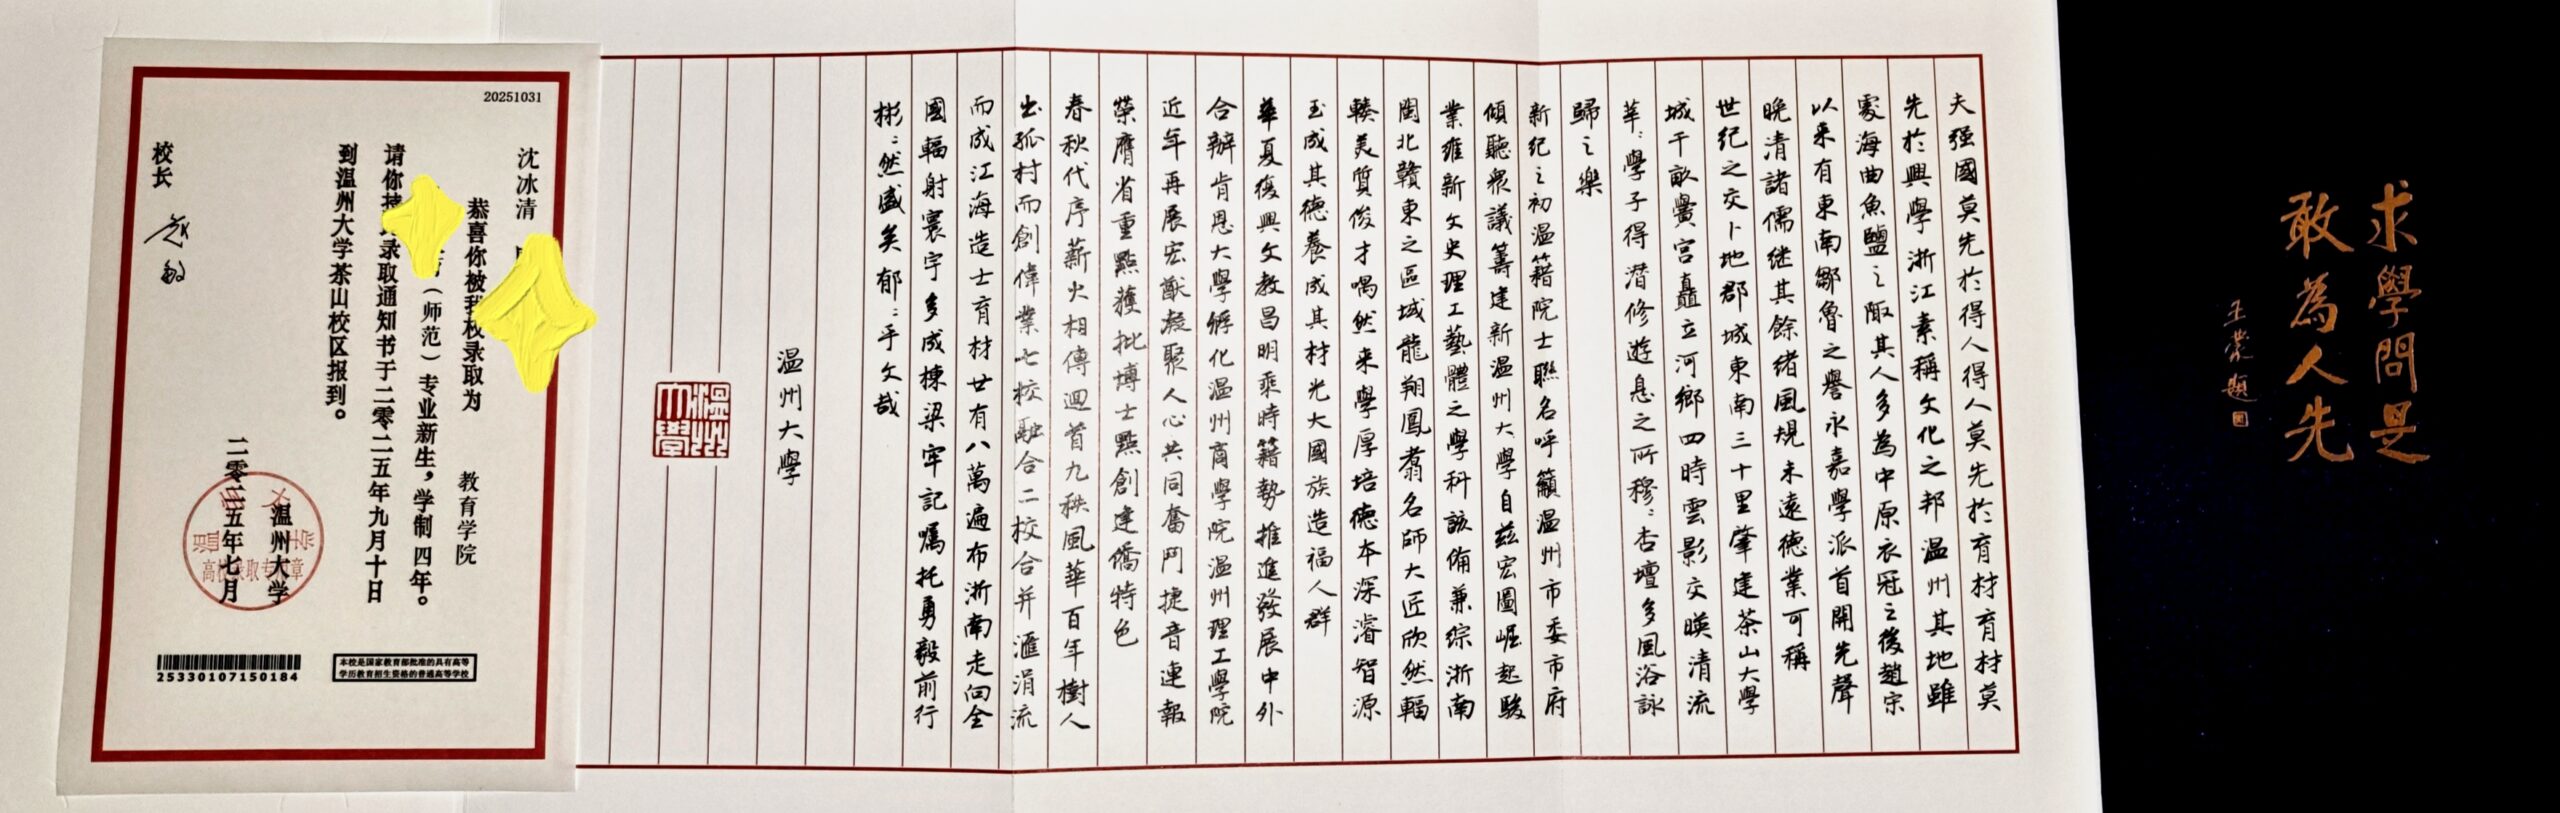 求學問是
敢為人先
王蒙題
夫强國莫先於得人得人莫先於育材育材莫
先於興學浙江素稱文化之邦温州其地雖
處海曲魚鹽之陬其人多為中原衣冠之後趙宋
以来有東南鄒魯之譽永嘉學派首開先聲
晚清諸儒继其餘绪風規未遠德業可稱
世纪之交卜地郡城東南三十里肇建茶山大學
城千畝黌宫矗立河鄉四時雲影交暎清流
莘:學子得潛修遊息之所穆:杏壇多風浴詠
歸之樂
新纪之初温籍院士聯名呼籲温州市委市府
傾聽衆議籌建新温州大學自兹宏圖崛起駿
業維新文史理工藝體之學科該備兼综浙南
閩北贛東之區域龍翔鳳翥名師大匠欣然輻
輳美質俊才喁然来學厚培德本深濬智源
玉成其德養成其材光大國族造福人群
華夏復興文教昌明乘時籍勢推進發展中外
合辦肯恩大學孵化温州商學院温州理工學院
近年再展宏猷凝聚人心共同奮鬥捷音連報
榮膺省重點獲批博士點創建僑特色
春秋代序薪火相傳迴首九秩風華百年樹人
出孤村而創偉業七校融合二校合并滙涓流
而成江海造士育材廿有八萬遍布浙南走向全
國輻射寰宇多成棟梁牢記囑托勇毅前行
彬:然盛矣郁:乎文哉
温州大學
温州大學
20251031
沈冰清
恭喜你被我校录取为 教育学院
（师范）专业新生，学制四年。
请你持录取通知书于二零二五年九月十日
到温州大学茶山校区报到。
校长 赵敏
温州大学
二零二五年七月
温州大学
高校录取专用章
25330107150184
本校是国家教育部批准的具有高等
学历教育招生资格的普通高等学校